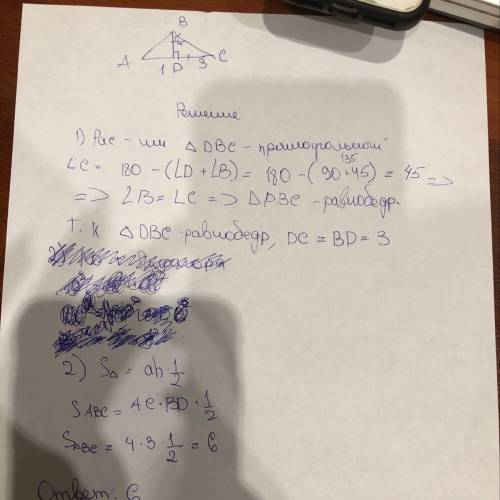 B
A
C
1 D 3
Решение
1) Рас-им △ DBC - прямоугольный
∠C = 180 - (∠D + ∠B) = 180 - (90+45) = 45 =>
135
=> ∠B = ∠C => △DBC - равнобедр.
т. к △ DBC - равнобедр, DC = BD = 3
2) S△ = ah · 1/2
SABC = AC · BD · 1/2
SABC = 4 · 3 · 1/2 = 6
Ответ: 6